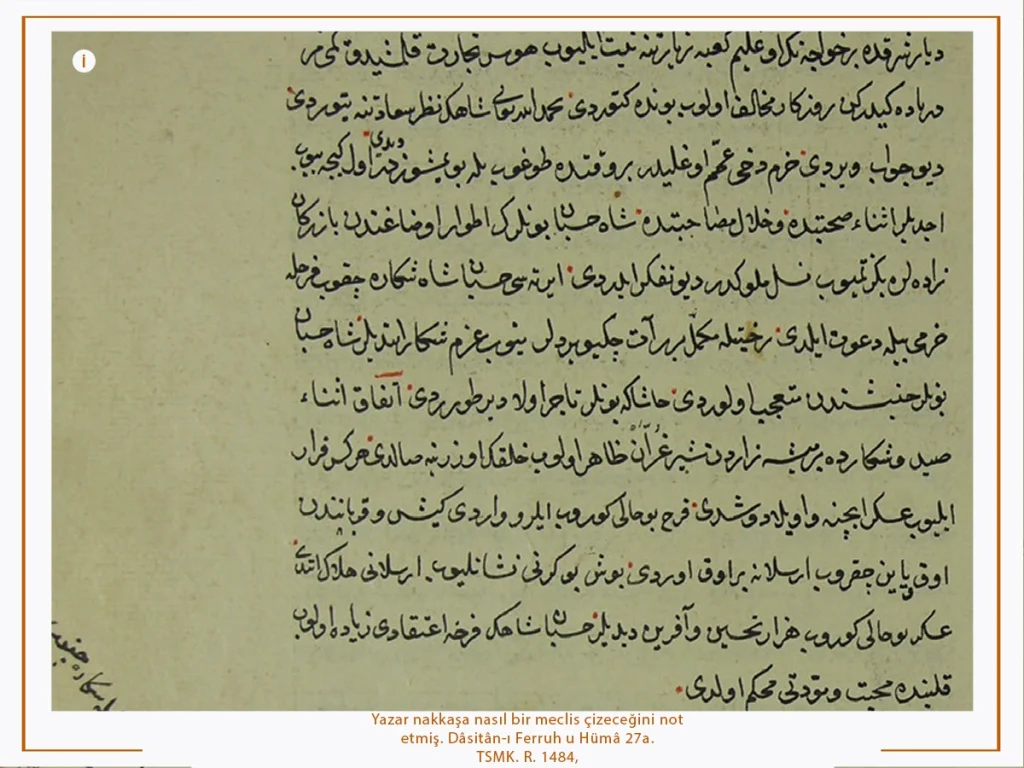 i
دیار شرقده بر خواجه نك اوغلیم کعبه زیارتنه نیت ایلیوب هوس تجارت قلمشیدوق کمی مز
دریاده کیدرکن روزکار مخالف اولوب بونده کتوردی شاهك نظر سعادتنه یتوردی
دیو جواب ویردی خرم دخی عمم اوغلیدر بر وقتده طوغوب بله بویمشوزدر دیدی اول کیجه ییوب
اجدیلر اثناء صحبتده و خلال مصاحبتده شاه حسبان بونلرك اطوار اوضاعندن بازرکان
زاده لره بکزتمیوب نسل ملوکدر دیو تفکر ایلردی ایرته سی حسبان شاه شکاره چقوب فرخله
خرمی بیله دعوت ایلدی رختیله مکمل برر آت چکیویردیلر بنوب عزم شکار ایتدیلر شاه حسبان
بونلر جنبشندن متعجب اولوردی حاشا که بونلر تاجر اولا دیر طورردی اتفاق اثناء
صید و شکارده بر بیشه زاردن شیر غران ظاهر اولوب خلقك اوزرینه صالدی هرکس فرار
ایلیوب عسکر ایچنه واویلا دوشدی فرخ بو حالی کوروب ایلرو واردی کیش و قربانندن
اوق یاین چقروب ارسلانه بر اوق اوردی بوش بوکرنی نشانلیوب ارسلانی هلاك ایتدی
عسکر بو حالی کوروب هزار تحسین و آفرین دیدیلر حسبان شاهك فرخه اعتقادی زیاده اولوب
قلبنده محبت و مودتی محکم اولدی
Yazar nakkaşa nasıl bir meclis çizeceğini not
etmiş. Dâsitân-ı Ferruh u Hümâ 27a.
TSMK. R. 1484,